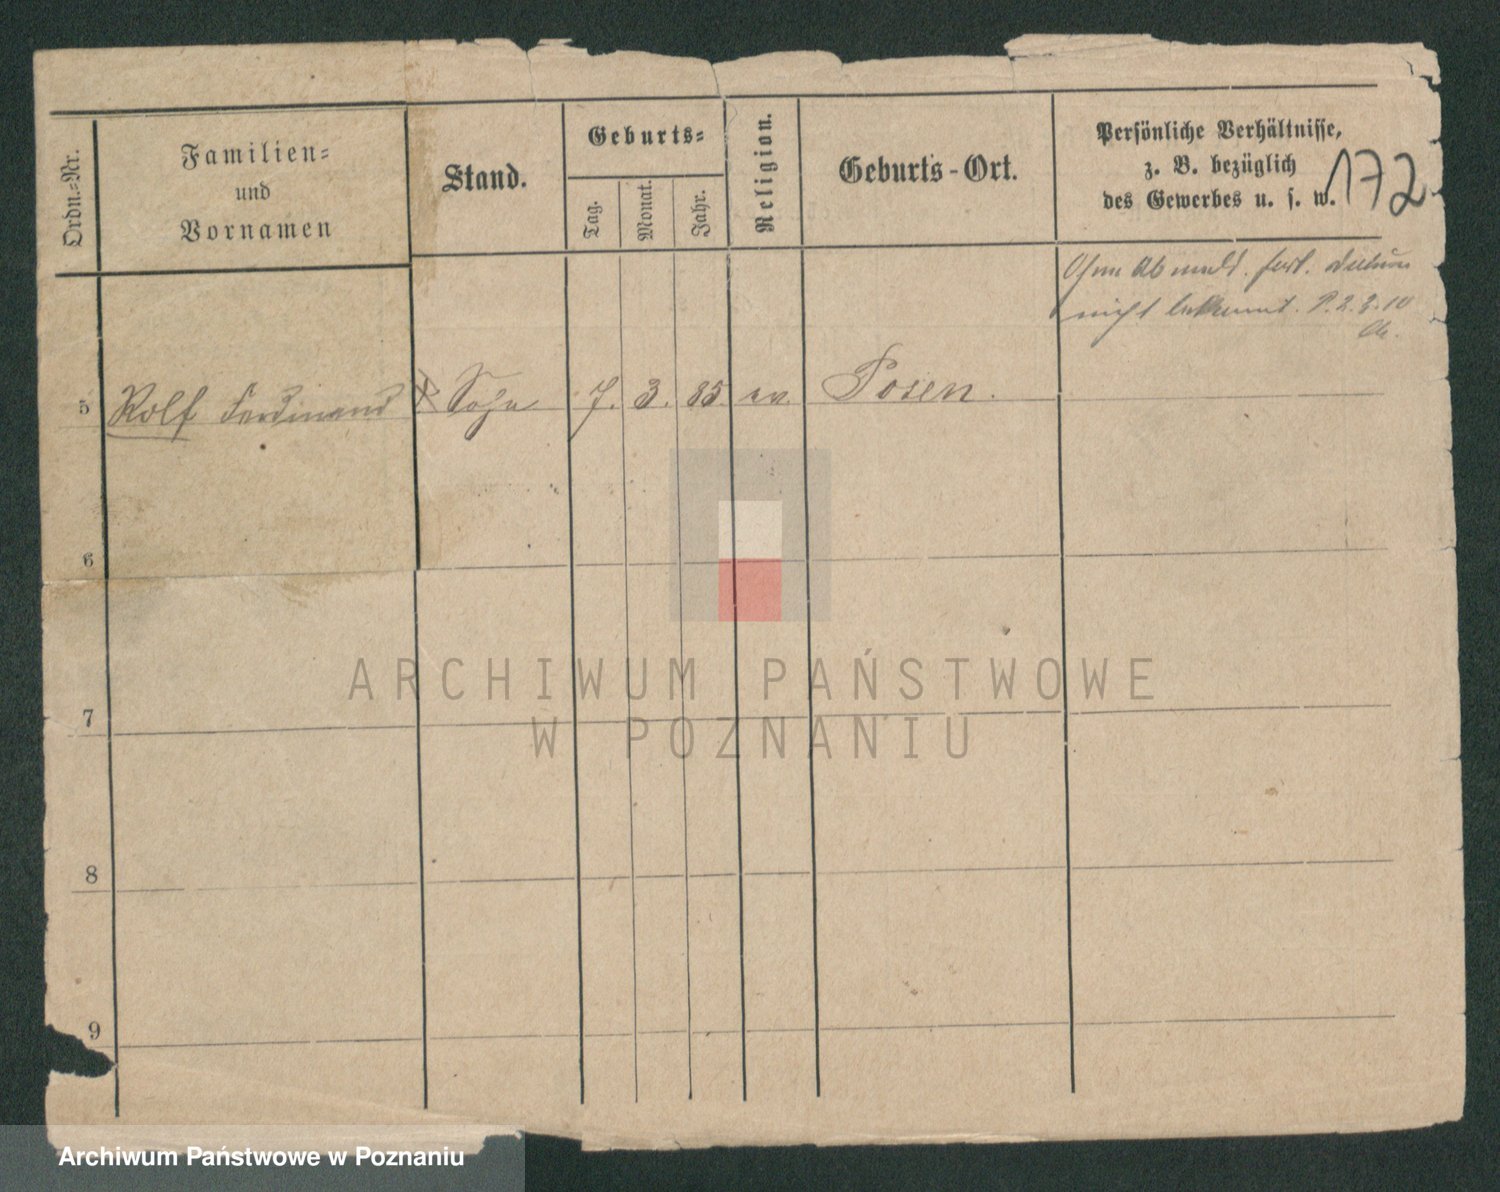 Ordn.=Nr.
Familien=
und
Vornamen
Stand.
Geburts=
Tag.
Monat.
Jahr.
Religion.
Geburts-Ort.
Persönliche Verhältnisse,
z. B. bezüglich
des Gewerbes u. s. w.
172
Ohne Abmeld. fort.
nicht bekannt. P. 2. 3. 10
5 Rolf Ferdinand Sohn 7. 3. 85. ev. Posen.
6
ARCHIWUM PAŃSTWOWE
W POZNANIU
7
8
9
Archiwum Państwowe w Poznaniu